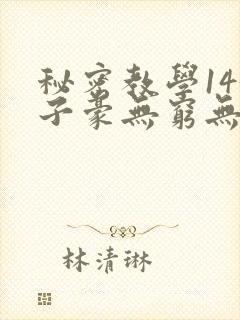 秘密教學14
子豪無窮無
林清琳